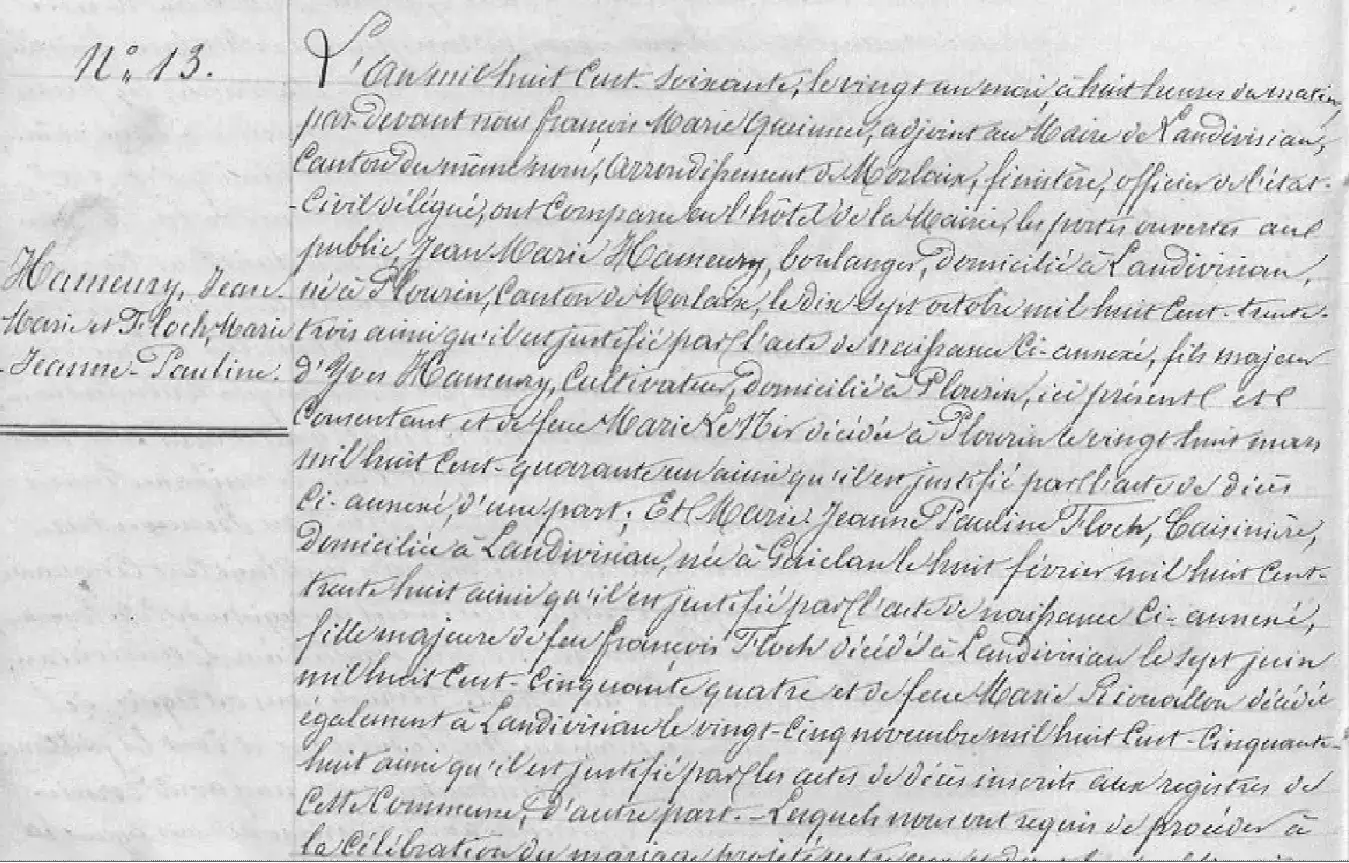 N° 13.
Hameury, Jean
Marie et Floch, Marie
-Jeanne-Pauline.
L'An mil huit cent soixante, le vingt un mai, à huit heures du matin,
par-devant nous François Marie Queinnec, adjoint au Maire de Landivisiau,
Canton du même nom, arrondissement de Morlaix, finistère, officier de l'état-
-Civil délégué, ont Comparu en l'hôtel de la Mairie, les portes ouvertes au
public, Jean Marie Hameury, boulanger, domicilié à Landivisiau,
né à Plourin, Canton de Morlaix, le dix sept octobre mil huit Cent-trente-
trois ainsi qu'il est justifié par l'acte de naissance Ci-annexé, fils majeur
d'Yves Hameury, Cultivateur, domicilié à Plourin, ici présent et
Consentant et de feue Marie Le Mir décédée à Plourin le vingt huit mars
mil huit Cent-quarante un ainsi qu'il est justifié par l'acte de décès
Ci-annexé, d'une part; Et Marie Jeanne Pauline Floch, Cuisinière,
domiciliée à Landivisiau, née à Guiclan le huit février mil huit Cent-
trente huit ainsi qu'il est justifié par l'acte de naissance Ci-annexé,
fille majeure de feu françois Floch décédé à Landivisiau le sept juin
mil huit Cent-Cinquante quatre et de feue Marie Riouallon décédée
également à Landivisiau le vingt-Cinq novembre mil huit Cent-Cinquante-
huit ainsi qu'il est justifié par les actes de décès inscrits aux registres de
Cette Commune, d'autre part.- Lesquels nous ont requis de procéder à
la Célébration du mariage projeté entre eux et